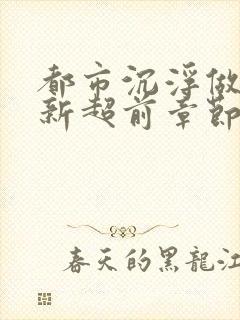 都市沉浮做
新超前章節
春天的黑龍江